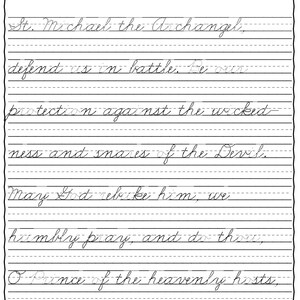 St. Michael the Archangel,
defend us in battle. Be our
protection against the wicked-
ness and snares of the Devil.
May God rebuke him, we
humbly pray, and do thou,
O Prince of the heavenly hosts,